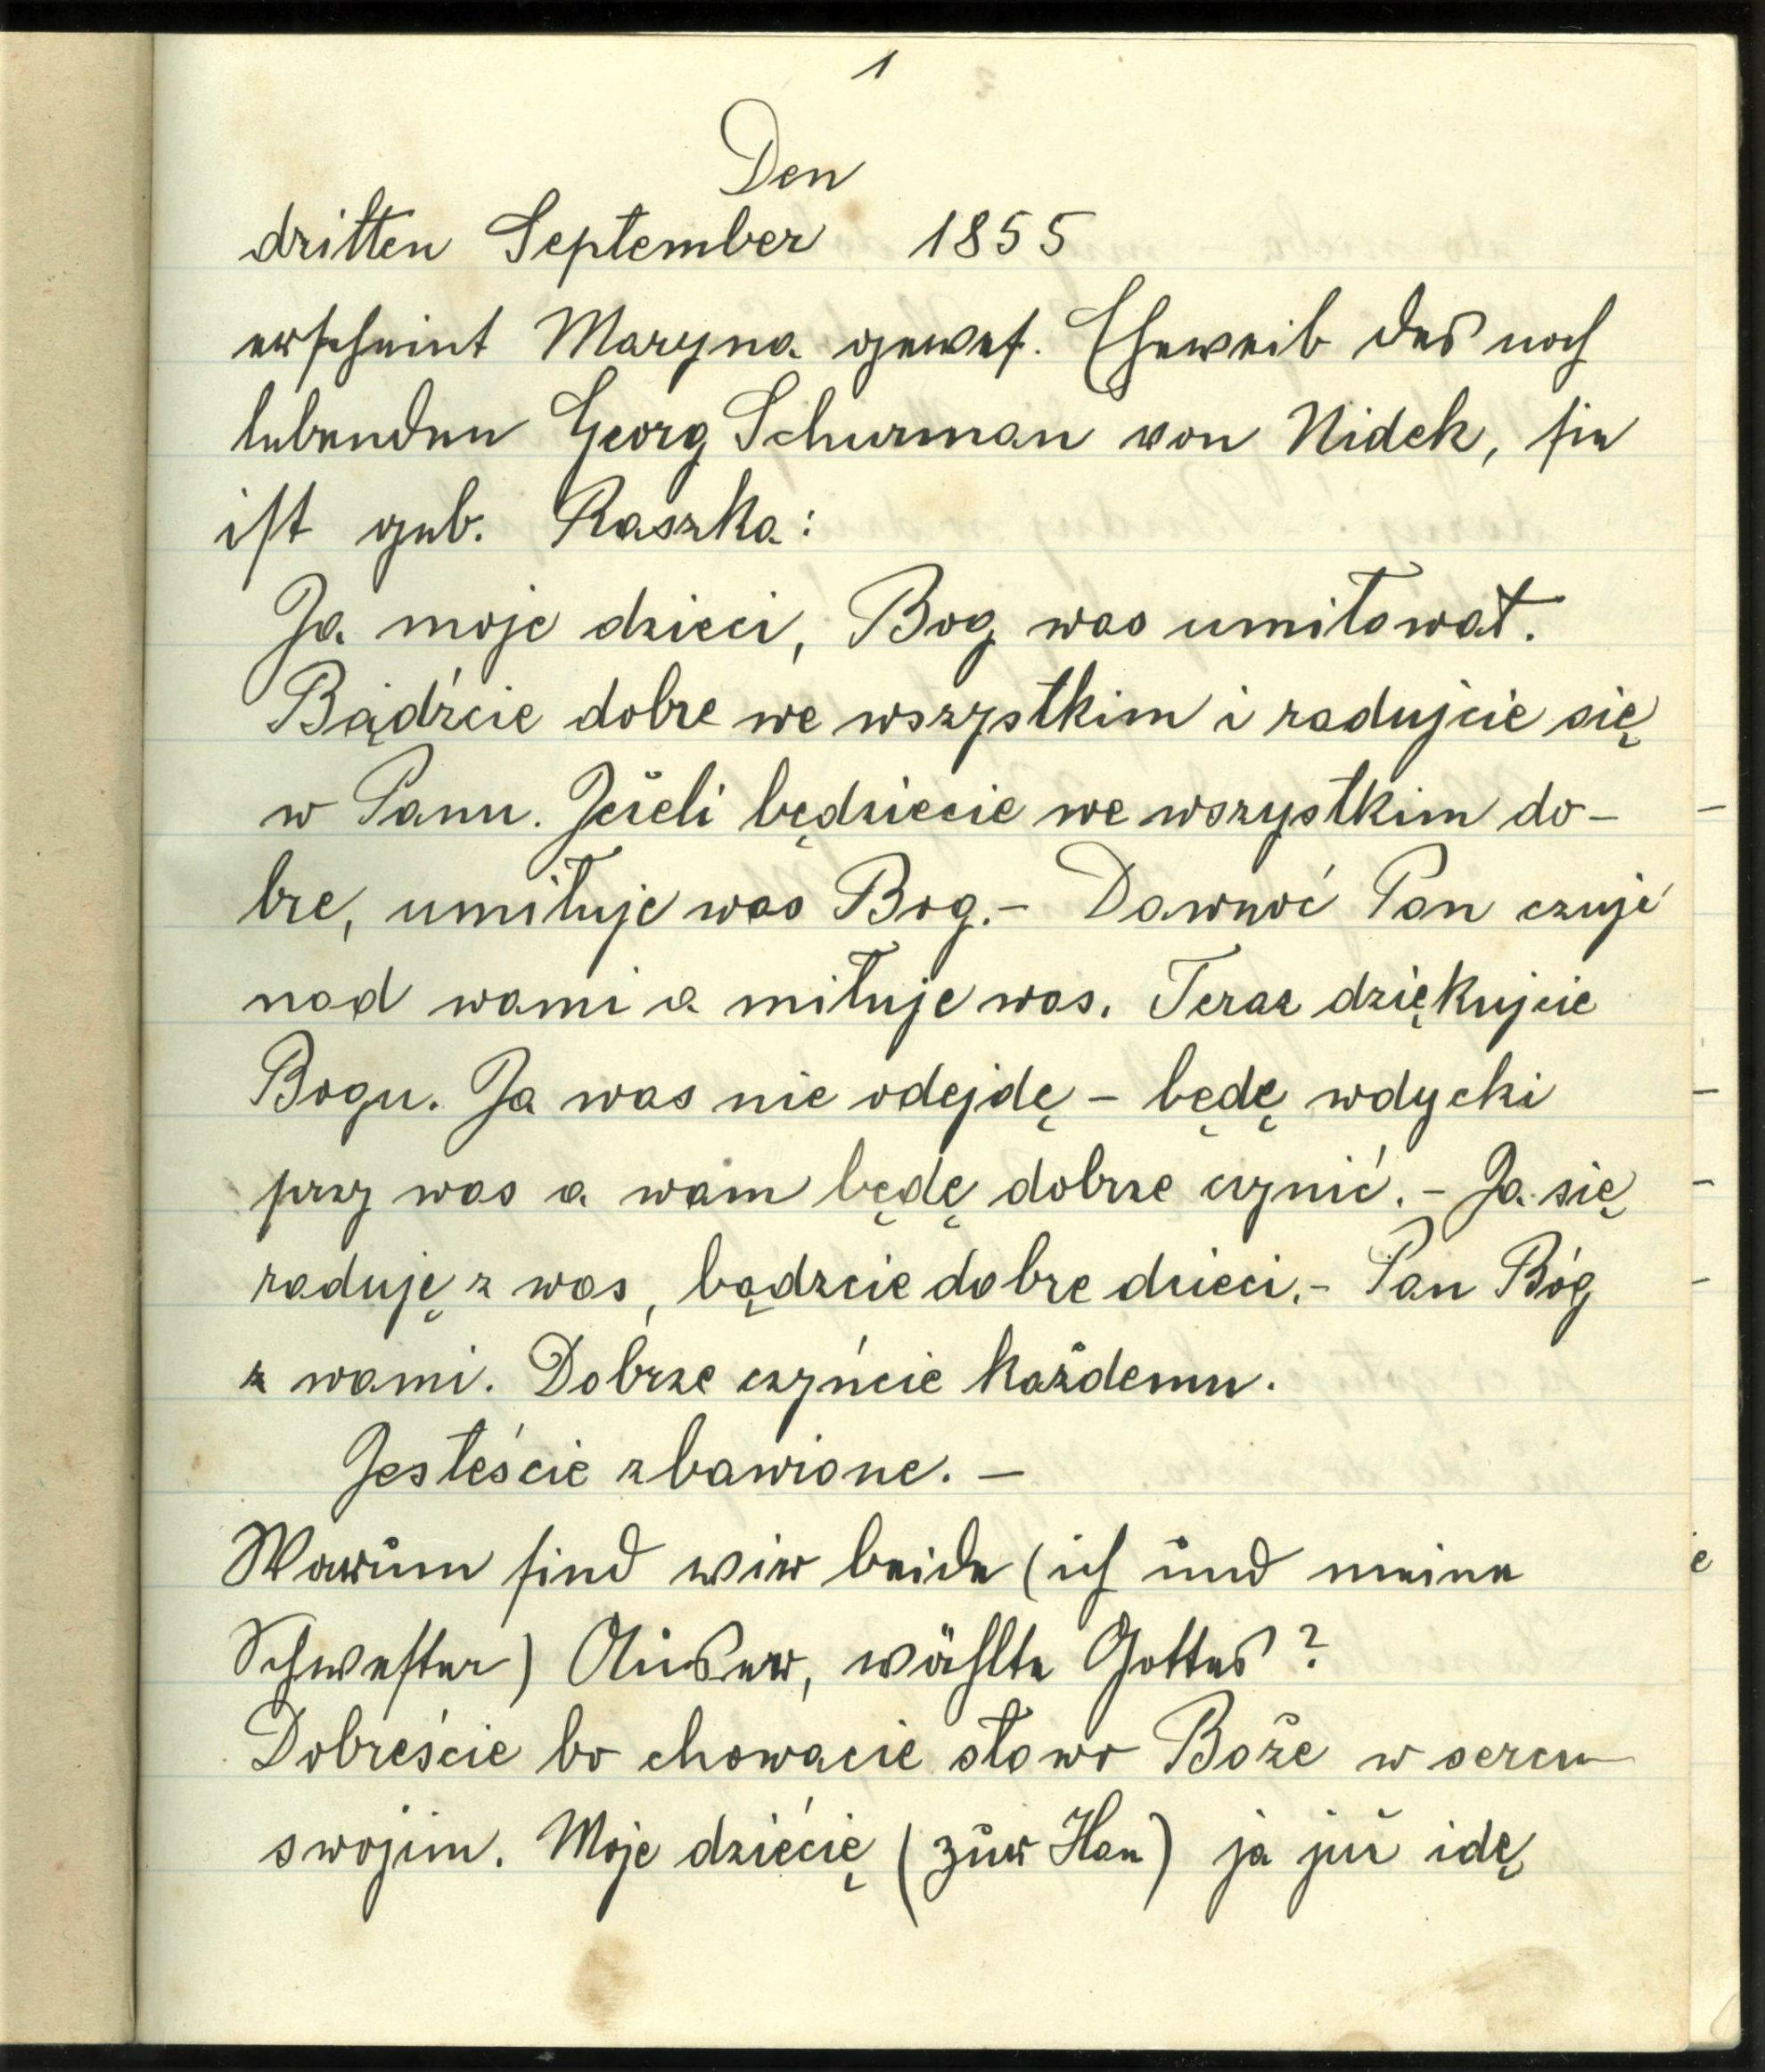 1
Den
dritten September 1855
erscheint Maryna gewes. Eheweib des noch
lebenden Georg Schurman von Nidek, sie
ist geb. Raszka:
Ja moje dzieci, Bog was umiłował.
Bądźcie dobre we wszystkim i radujcie się
w Panu. Jeżeli będziecie we wszystkim do-
bre, umiłuje was Bog.- Dawnoć Pan czuje
nad wami a miłuje was. Teraz dziękujcie
Bogu. Ja was nie odejdę - będę wdycki
przy was a wam będę dobrze czynić.- Ja się
raduję z was, bądźcie dobre dzieci.- Pan Bóg
z wami. Dobrze czyńcie każdemu.
Jesteście zbawione. -
Warum sind wir beide (ich und meine
Schwester) Auser, wählte Gottes?
Dobreście bo chowacie słowo Boże w sercu
swojim. Moje dziécię (zur Han) ja już idę